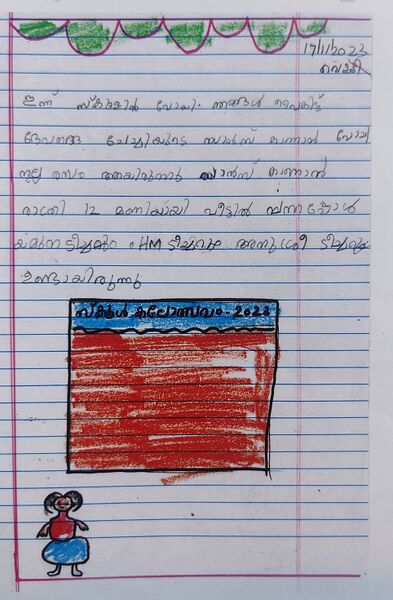 17/11/2023
വെള്ളി
ഇന്ന് സ്കൂളിൽ പോയി. ഞങ്ങൾ വൈകിട്ട്
ദേവനന്ദ ചേച്ചിയുടെ ഡാൻസ് കാണാൻ പോയി
നല്ല രസം ആയിരുന്നു ഡാൻസ് കാണാൻ
രാത്രി 12 മണിയായി വീട്ടിൽ വന്നപ്പോൾ
യമുന ടീച്ചറും HM ടീച്ചറും അനുശ്രീ ടീച്ചറും
ഉണ്ടായിരുന്നു
സ്കൂൾ കലോത്സവം - 2023